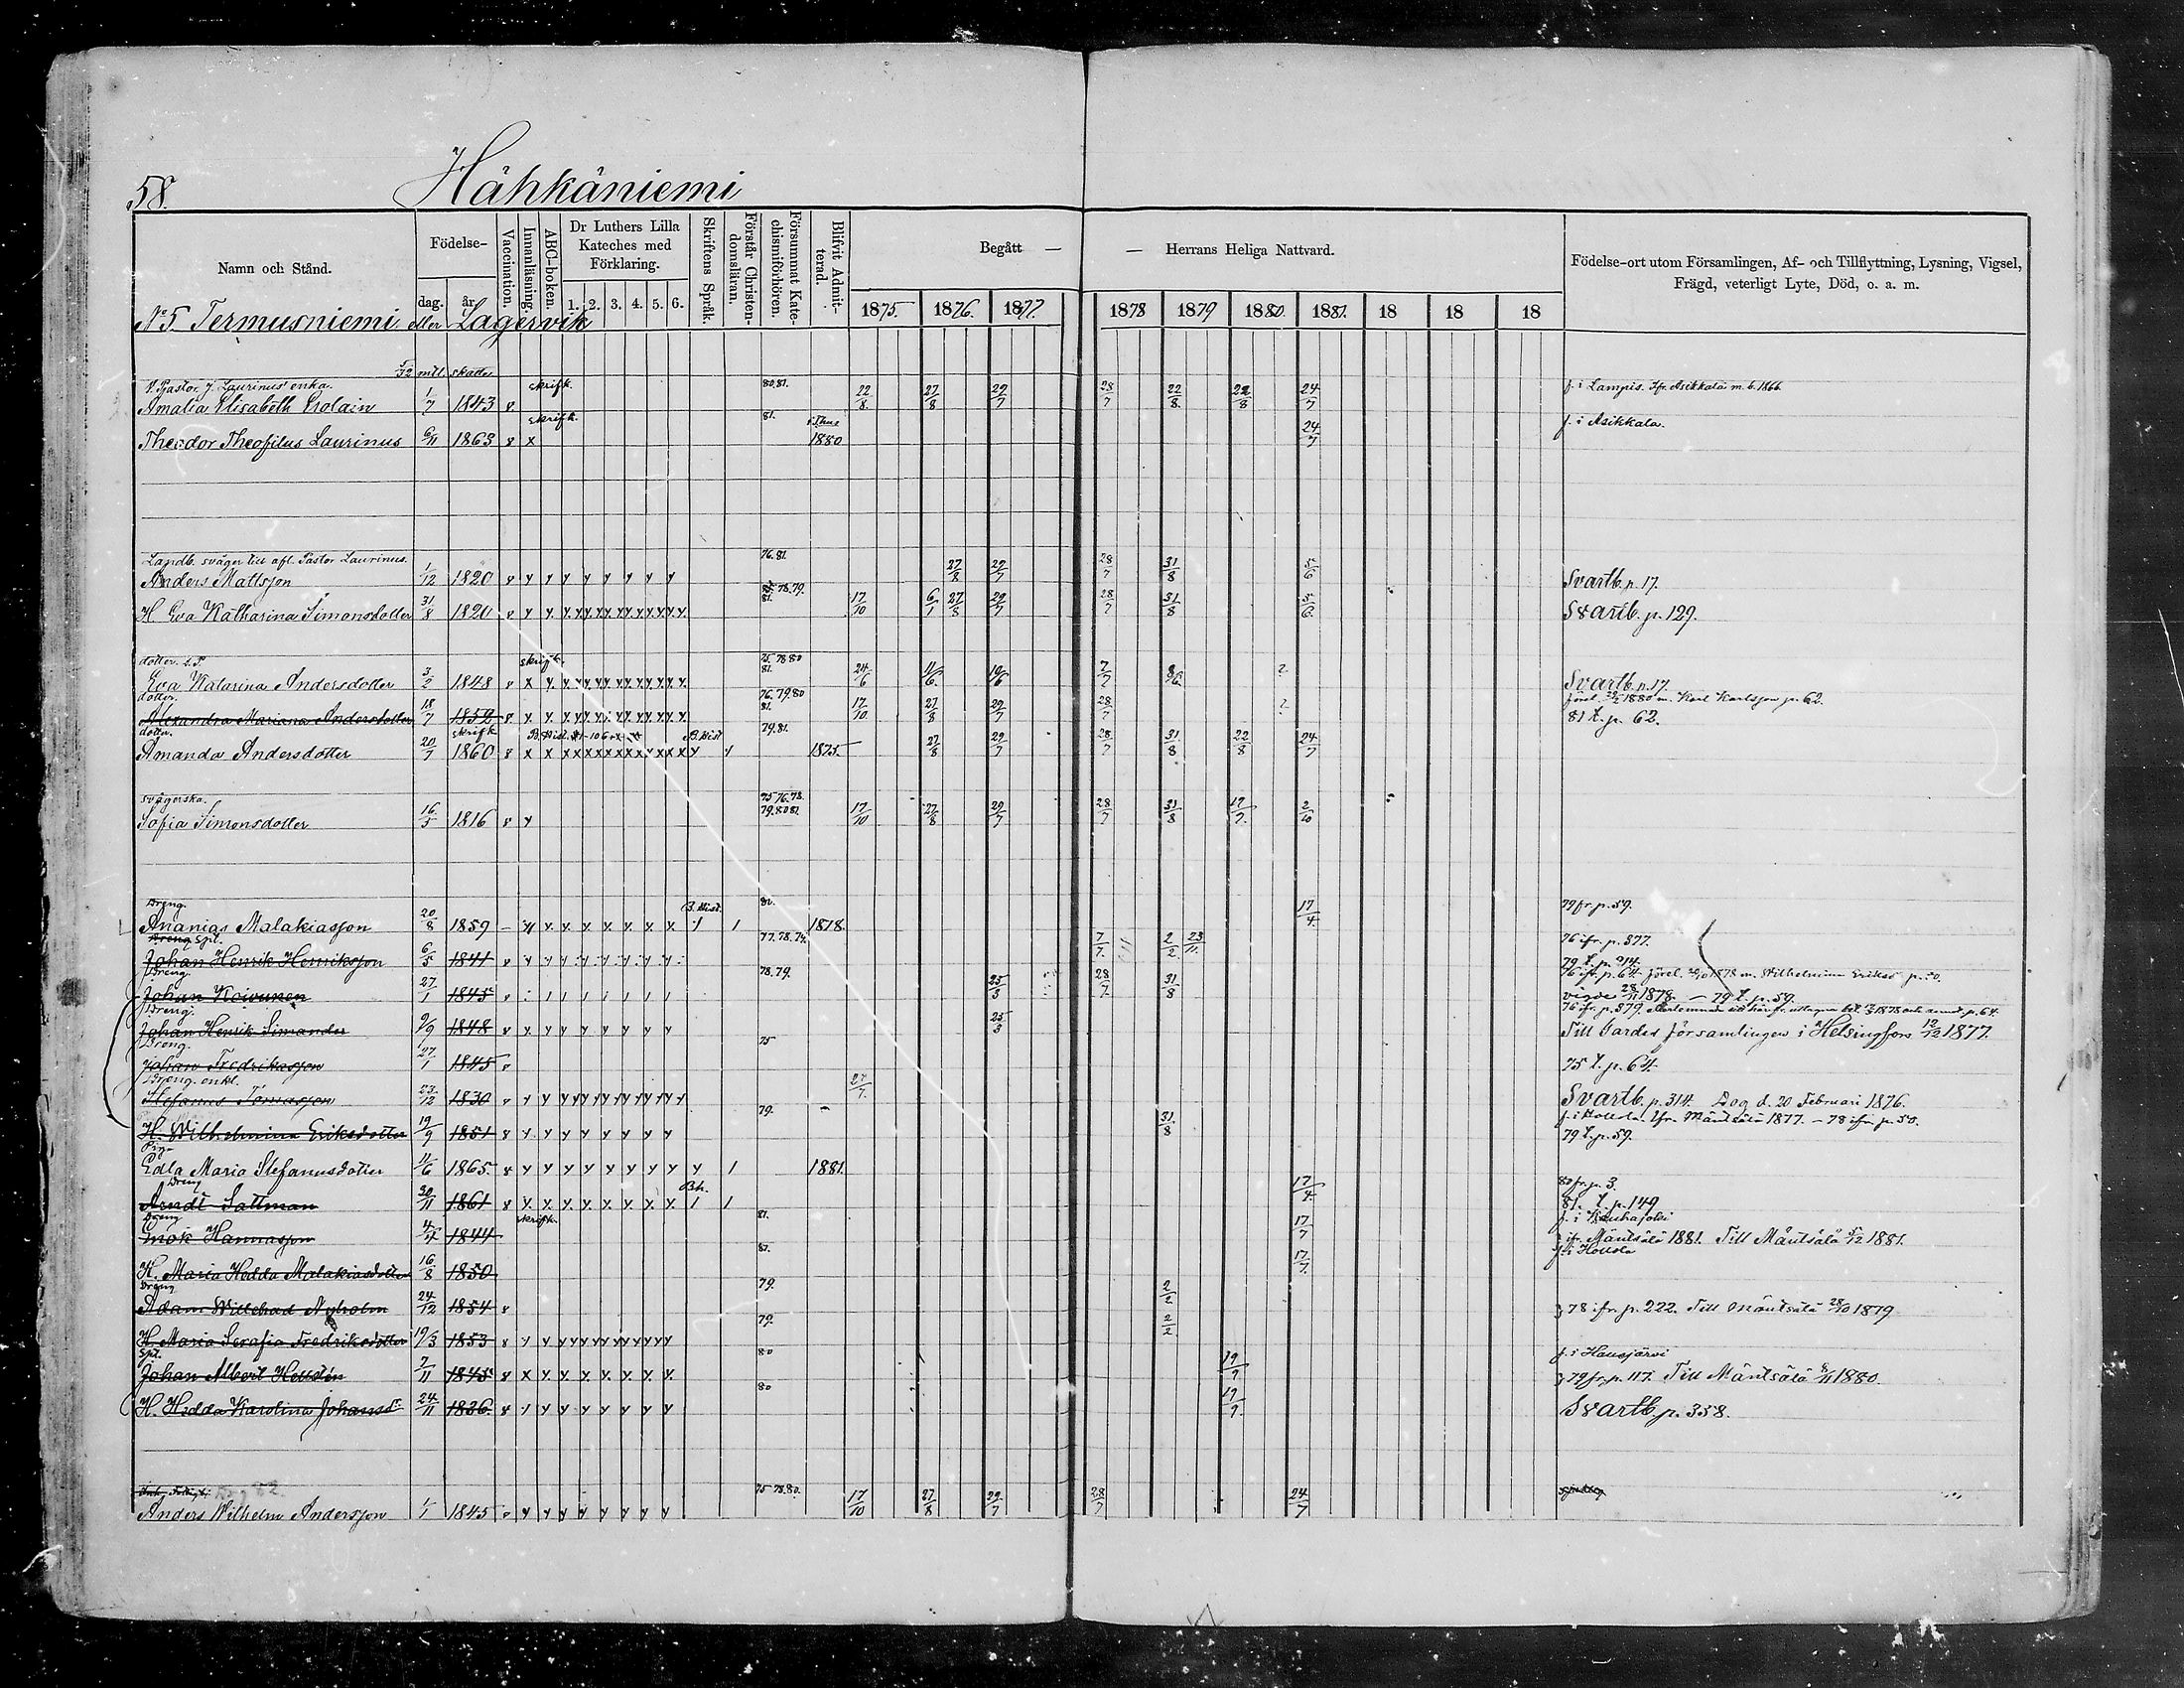 58.
Hähkäniemi
Namn och Stånd.
Födelse-
dag.
år
Vaccination.
Innanläsning.
ABC-boken.
Dr Luthers Lilla
Kateches med
Förklaring.
1. 2. 3. 4. 5. 6.
Skriftens Språk.
Förstår Christen-
domsläran.
Försummat Kate-
chismiförhören.
Blifvit Admit-
terad.
Begått —
— Herrans Heliga Nattvard.
1875. 1876. 1877. 1878 1879 1880. 1881. 18 18 18
Födelse-ort utom Församlingen, Af- och Tillflyttning, Lysning, Vigsel,
Frägd, veterligt Lyte, Död, o. a. m.
No 5. Termusniemi eller Lagervik
5/32 mtl. skatte
V. Pastor J. Laurinus' enka. skriftk. 80.81. f. i Lampis. Ifr. Asikkala m. b. 1866
Amalia Elisabeth 1/7 1843 v. 22/8. 27/8 29/7 28/7 22/8. 22/8 24/7
skriftk. 81. f. i Asikkala.
Theodor Theofilus Laurinus 6/11 1863 v x 1880 24/7
Landb. svåger till afl. Pastor Laurinus. 76.81.
Anders Mattsson 1/12 1820 v y y y y y y y y 27/8 29/7 28/7 31/8 5/6 Svartb. p. 17.
78.79. 81.
H. Eva Katharina Simonsdotter 31/8 1820 17/10 6/1 27/8 29/7 28/7 31/8 5/6. Svartb. p. 129.
dotter. skriftk. 75.78.80 81.
Eva Katarina Andersdotter 3/2 1848 24/6 11/6. 10/6 7/7 8/6. 2 Svartb. p. 17
dotter. 76.79.80 81. 1880 m. Karl Karlsson p. 62.
Alexandra Mariana Andersdotter 18/7 1852 17/10. 27/8 29/7 28/7 2 81 t. p. 62.
dotter. skriftk B. Hist 79.81.
Amanda Andersdotter 20/7 1860 1875. 27/8 29/7 28/7 31/8 22/8 24/7
svägerska. 75.76.78. 79.80.81
Sofia Simonsdotter 16/5 1816 v y 17/10 27/8 29/7 28/7 31/8 17/7. 2/10
Dreng. B. Hist. 80. 79 fr. p. 59.
Ananias Malakiasson 20/8 1859 1878. 17/4.
Dreng Spl. 77.78.79. 76 ifr. p. 377.
Johan Henrik Henriksson 6/5 1841 7/7. 2/2 23/11. 79 t. p. 214.
Dreng. 78.79. 76 ifr. p. 64. 1878 m. Wilhelmina Eriksd. p. 50.
Johan Koivunen 27/1 1845 25/3 28/7. 31/8 vigde 28/11 1878. — 79 t. p. 59.
Dreng. 76 ifr. p. 379.
Johan Henrik Simander 9/9 1848 25/3 Till Gardes församlingen i Helsingfors 12/12 1877.
Dreng. 75
Johan Fredriksson 27/1 1845 v 75 t. p. 64.
Dreng. enkl. 27/7.
Stefanus Tomasson 23/12 1830 Svartb. p. 314. Dog d. 20 Februari 1876.
79. f. i Hollola. Ifr. Mäntsälä 1877. — 78 ifr. p. 50.
H. Wilhelmina Eriksdotter 19/9 1851 31/8 79 t. p. 59.
Piga
Edla Maria Stefanusdotter 11/6 1865 1881.
Dreng B.h. 80 fr. p. 3.
Arndt Sattman 30/11 1861 17/4. 81. t. p. 149
Dreng skriftk. 81. f. i Kauhajoki
Enok Hannasson 4/7 1844 17/7 ifr. Mäntsälä 1881. Till Mäntsälä 5/12 1881.
81. f. i Hollola
H. Maria Hedda Malakiasdotter 16/8 1850 17/7.
Dreng 79.
Adam Willehad Nyholm 24/12 1854 v 2/2 78 ifr. p. 222. Till Mäntsälä 28/10 1879
79.
H. Maria Serafia Fredriksdotter 19/3 1853 2/2.
Spl. 80 f. i Hausjärvi
Johan Albert Hellstén 7/11 1845 19/9 79 fr. p. 117. Till Mäntsälä 8/11 1880.
80
H. Hedda Karolina Johansd:r 24/11 1836. 19/9. Svartb. p. 338.
75.78.80.
Anders Wilhelm Andersson 1/1 1845 17/10 27/8 29/7 28/7 24/7